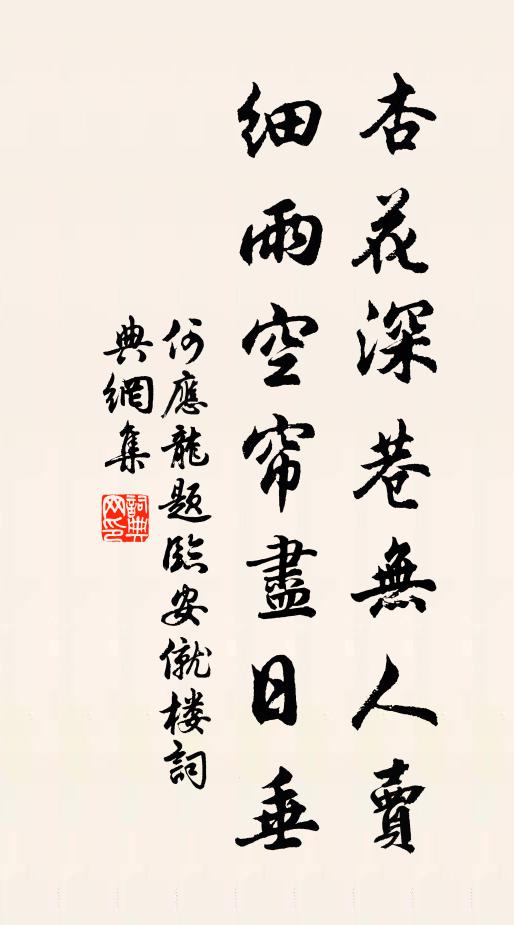 杏花深巷無人賣
細雨空帘盡日垂
何應龍題臨安僦楼詞
典網集
詞典网印